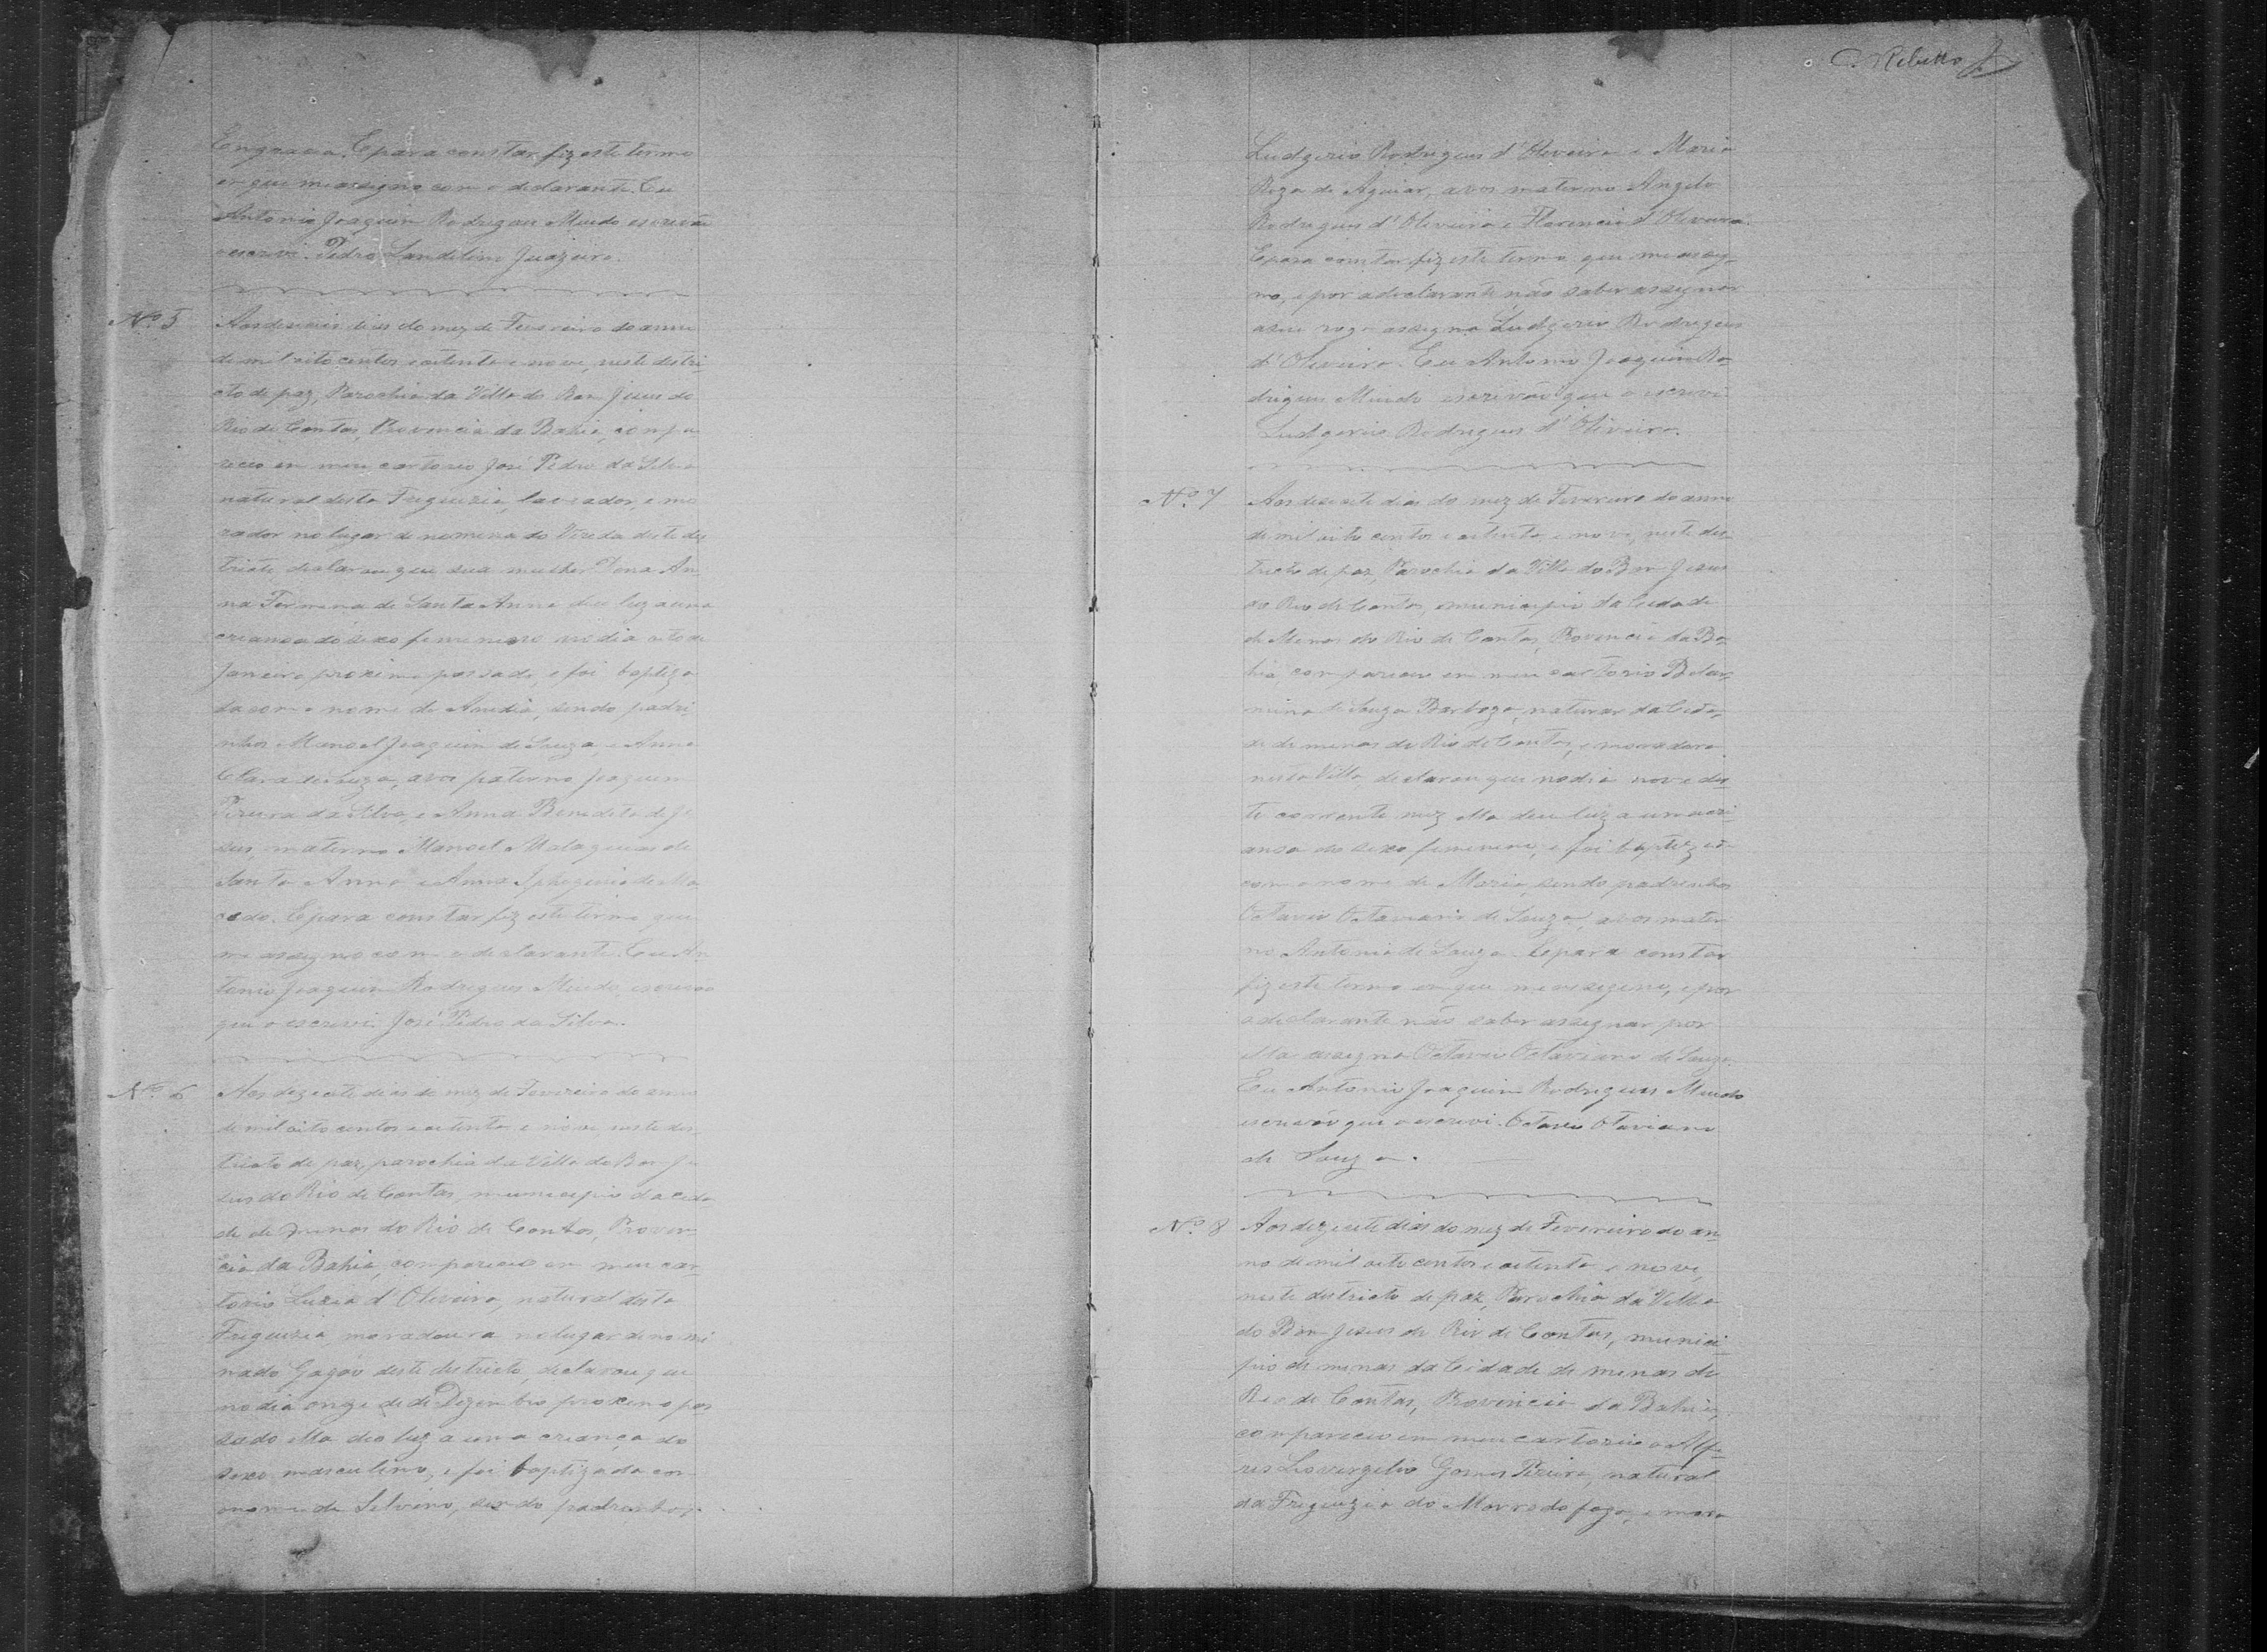 Engracia. E para constar fiz este termo
em que me assigno com o declarante. Eu
Antonio Joaquim Rodrigues Mundo escrivão
o escrevi. Pedro Landelino Juazeiro.
Nº 5
Aos deseseis dias do mez de Fevereiro do anno
de mil oito centos e oitenta e nove, neste distri-
cto de paz, Parochia da Villa do Bom Jesus do
Rio de Contas, Provincia da Bahia, compa
receo em meu cartorio José Pedro da Silva
natural desta Freguezia, lavrador, e mo
rador no lugar denominado Vereda deste dis
tricto declarou que sua mulher Dona An
na de Santa Anna deu luz a uma
criança do sexo femenino no dia oito de
Janeiro proximo passado, e foi baptiza
da com o nome de Amedia, sendo padri
nhos Manoel Joaquim de Souza, e Anna
Clara de Souza, avos paterno Joaquim
Pereira da Silva, e Anna Benedita de Je
sus, materno Manoel Malaquias de
Santa Anna e Anna Iphigenia de Ma
cedo. E para constar fiz este termo que
me assigno com o declarante. Eu An
tonio Joaquim Rodrigues Mundo, escrivão
que o escrevi. José Pedro da Silva.
Nº 6
Aos dezesete dias do mez de Fevereiro do anno
de mil oito centos e oitenta e nove, neste dis
tricto de paz, parochia da Villa do Bom Je
sus do Rio de Contas, municipio da cida
de de Minas do Rio de Contas, Provin
cia da Bahia, compareceo em meu car
torio Luzia d'Oliveira, natural desta
Freguezia, moradoura no lugar denomi
nado Gagáo deste districto, declarou que
no dia onze de de Dezembro proximo pas
sado ella deo luz a uma criança do
sexo masculino, e foi baptizada com
o nome de Silvino, sendo padrinhos
C. Rebello
Ludgerio Rodrigues d'Oliveira e Maria
Roza de Aguiar, avos materno Angelo
Rodrigues d'Oliveira e Florencia d'Oliveira.
E para constar fiz este termo que me assig-
no, e por a declarante não saber assignar
a seu rogo assigna Ludgerio Rodrigues
d'Oliveira. Eu Antonio Joaquim Ro-
drigues Mundo escrivão que o escrevi
Ludgerio Rodrigues d'Oliveira.
Nº 7
Aos desesete dias do mez de Fevereiro do anno
de mil oito centos e oitenta e nove, neste dis-
tricto de paz, Parochia da Villa do Bom Jesus
do Rio de Contas, municipio da Cidade
de Minas do Rio de Contas, Provincia da Ba-
hia compareceu em meu cartorio Belar-
mina de Souza Barboza, natural da Cida-
de de minas do Rio de Contas, e moradora
nesta Villa, declarou que no dia nove des-
te corrente mez ella deu luz a uma cri-
ança do sexo femenino, e foi baptizada
com o nome de Maria, sendo padrinhos
Octavio Octaviano de Souza, avos mater
no Antonia de Souza. E para constar
fiz este termo em que me assigno, e por
a declarante não saber assignar por
ella assigna Octavio Octaviano de Souza
Eu Antonio Joaquim Rodrigues Mundo
escrivão que o escrevi. Octavio Otaviano
de Souza.
Nº 8
Aos dezesete dias do mez de Fevereiro do an
no de mil oito centos e oitenta e nove,
neste districto de paz, Parochia da Villa
do Bom Jesus do Rio de Contas, munici
pio de minas da Cidade de minas do
Rio de Contas, Provincia da Bahia,
compareceo em meu cartorio o Alfe-
res Liovergilio Gomes Pereira, natural
da Freguezia do Morro do fogo, e mora